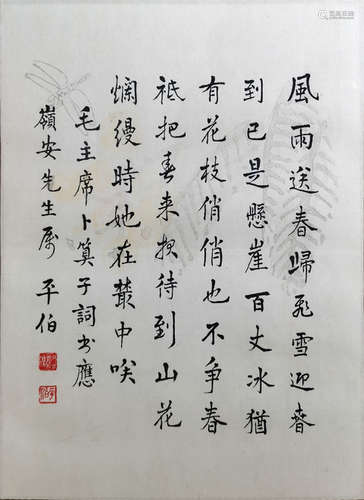 風雨送春歸飛雪迎春
到已是懸崖百丈冰猶
有花枝俏俏也不爭春
祗把春来报待到山花
爛縵時她在叢中咲
毛主席卜算子詞书應
嶺安先生属 平伯